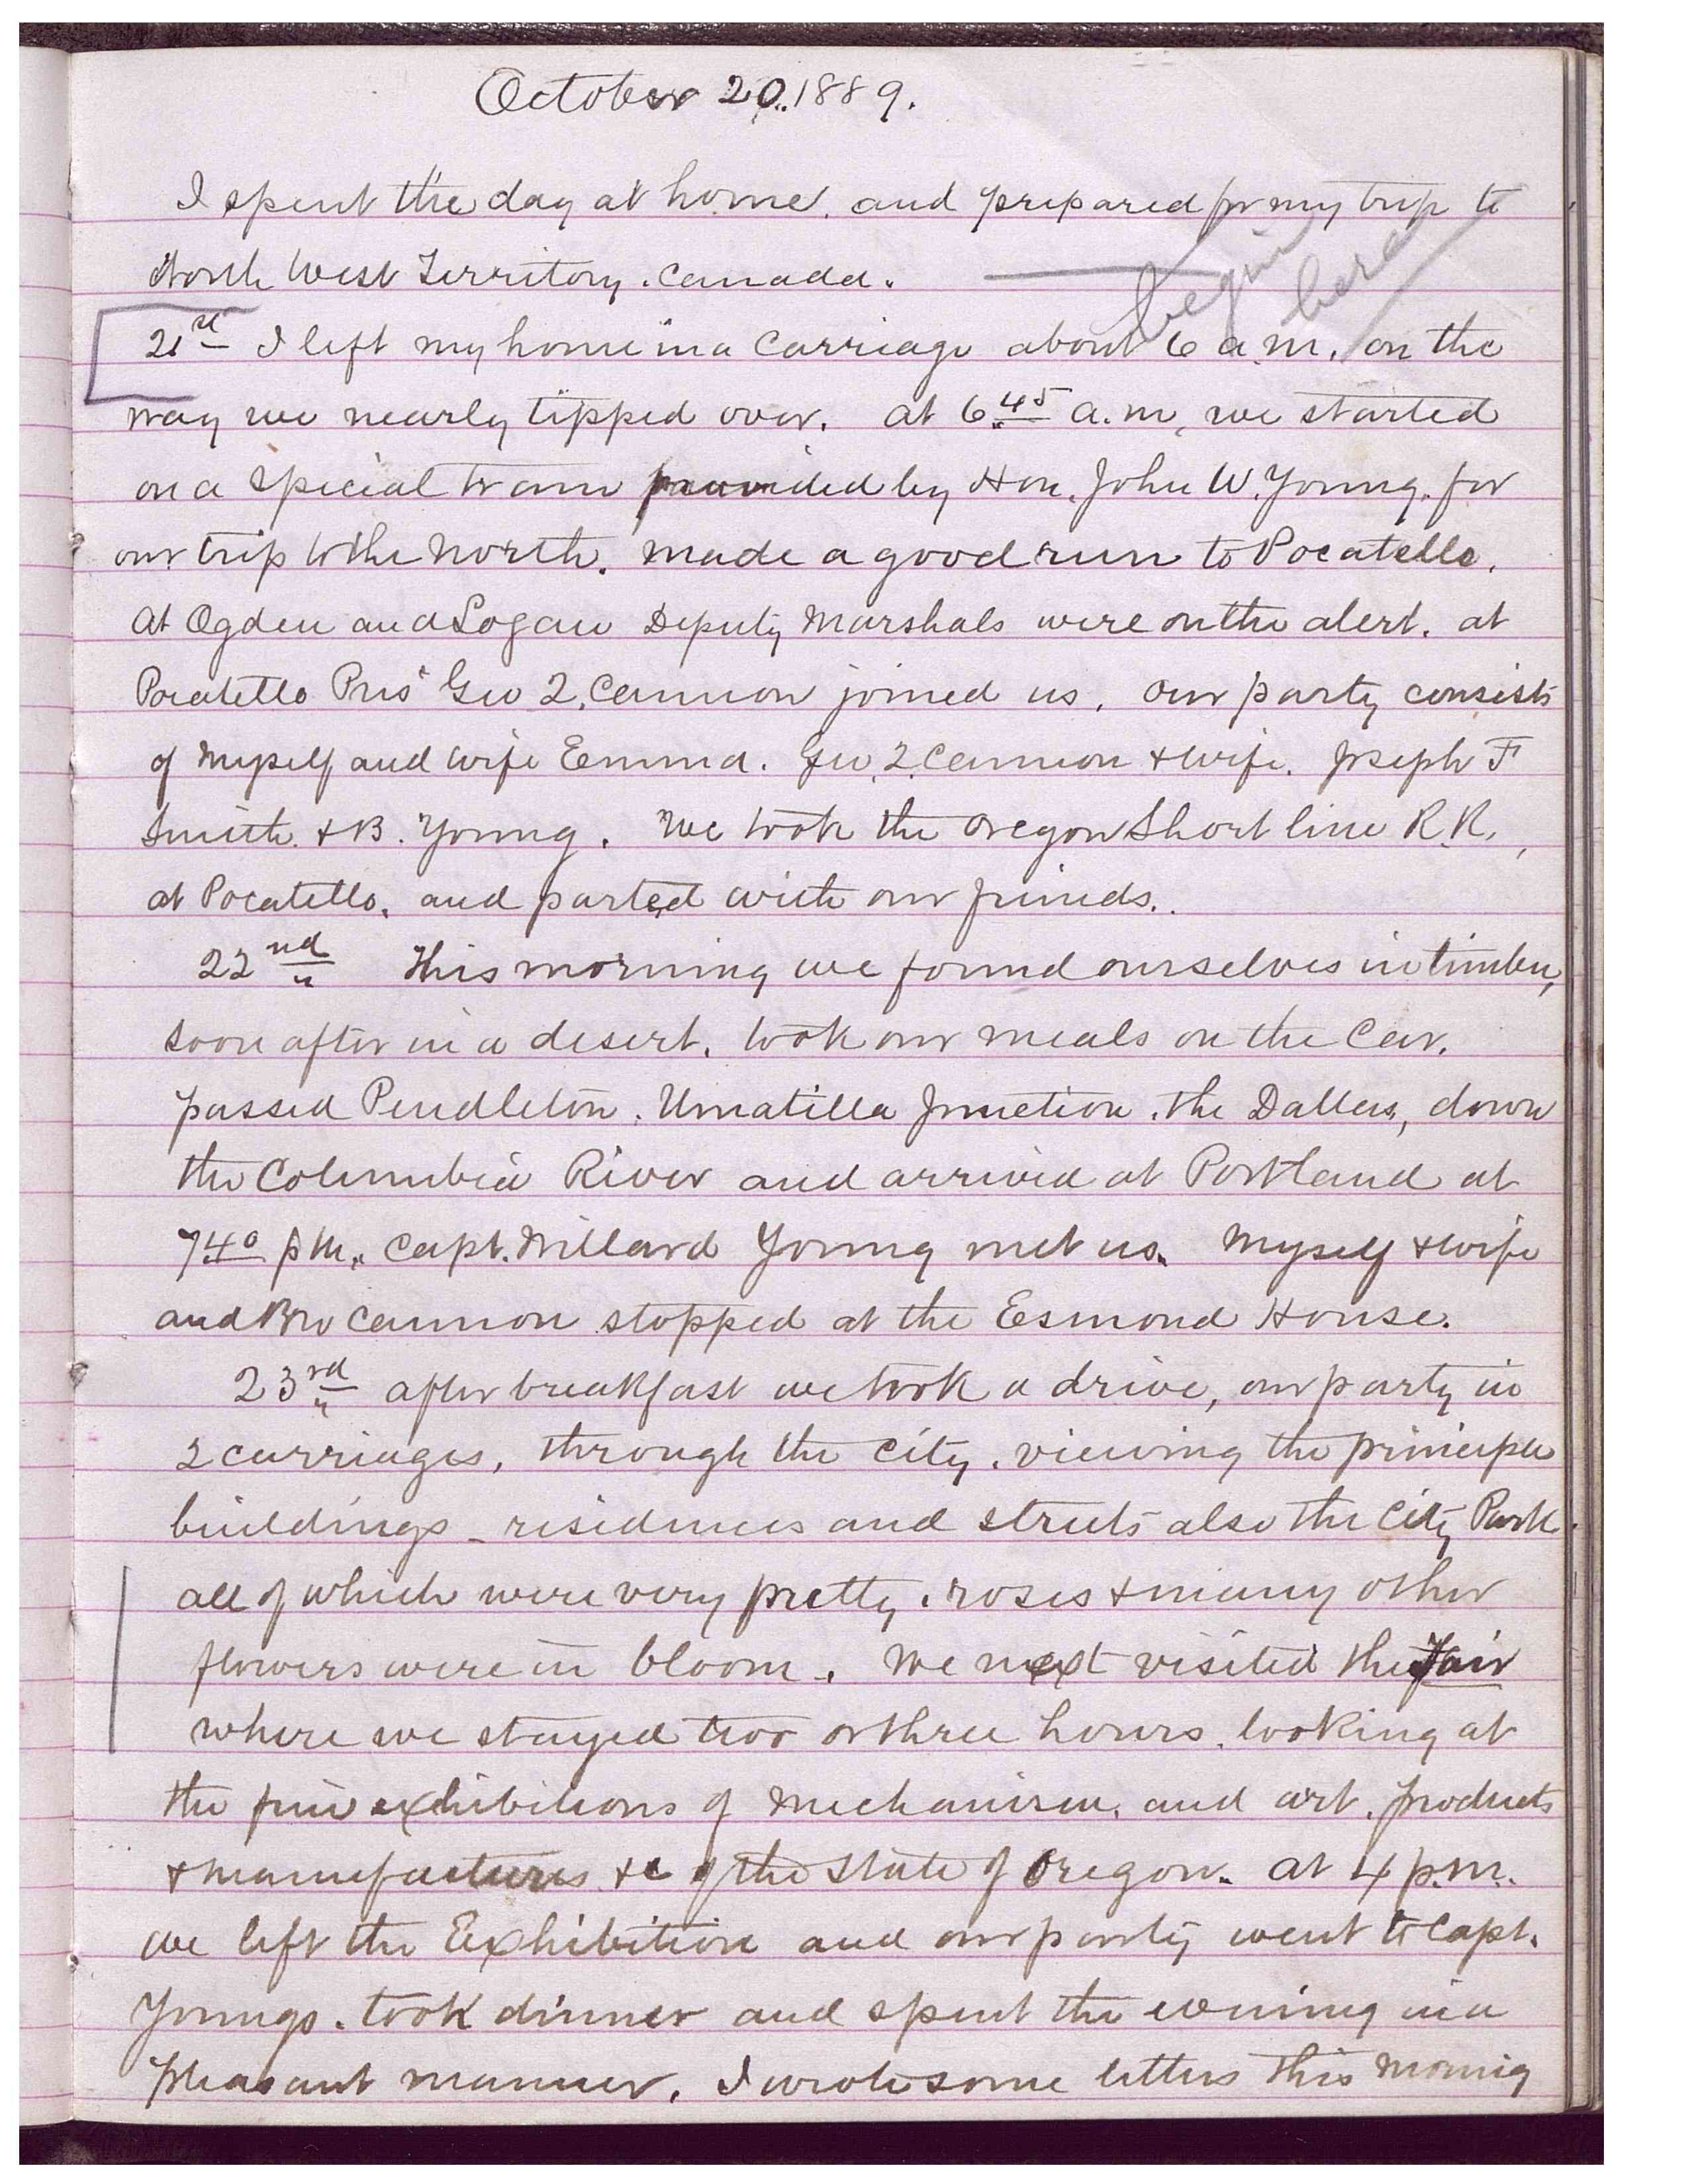 October 20. 1889.
I spent the day at home, and prepared for my trip to
North West Territory. Canada.
begin here
21st I left my home in a Carriage about 6 a.m. on the
way we nearly tipped over. at 6.45 a.m, we started
on a special train provided by Hon. John W. Young. for
our trip to the north. made a good run to Pocatello.
At Ogden and Logan Deputy Marshals were on the alert. at
Pocatello Pres Geo Q. Cannon joined us. our party consists
of Myself and wife Emma. Geo. Q. Cannon & wife. Joseph F
Smith. & B. Young. We took the Oregon Short line R.R,
at Pocatello. and parted with our friends.
22nd This morning we found ourselves in timber,
soon after in a desert. took our meals on the Car.
passed Pendleton. Umatilla Junction. the Dalles, down
the Columbia River and arrived at Portland at
7 40 p M. Capt. Willard Young met us. Myself & wife
and Bro Cannon stopped at the Esmond House.
23rd after breakfast we took a drive, our party in
2 carriages, through the city. viewing the principle
buildings - residences and streets also the City Park
all of which were very pretty. roses & many other
flowers were in bloom. We next visited the Fair
where we stayed two or three hours. looking at
the fine exhibitions of mechanism. and art. products
& manufactures &c of the State of Oregon. at 4 p.m.
we left the Exhibition and our party went to Capt.
Youngs. took dinner and spent the evening in a
pleasant manner. I wrote some letters this morning